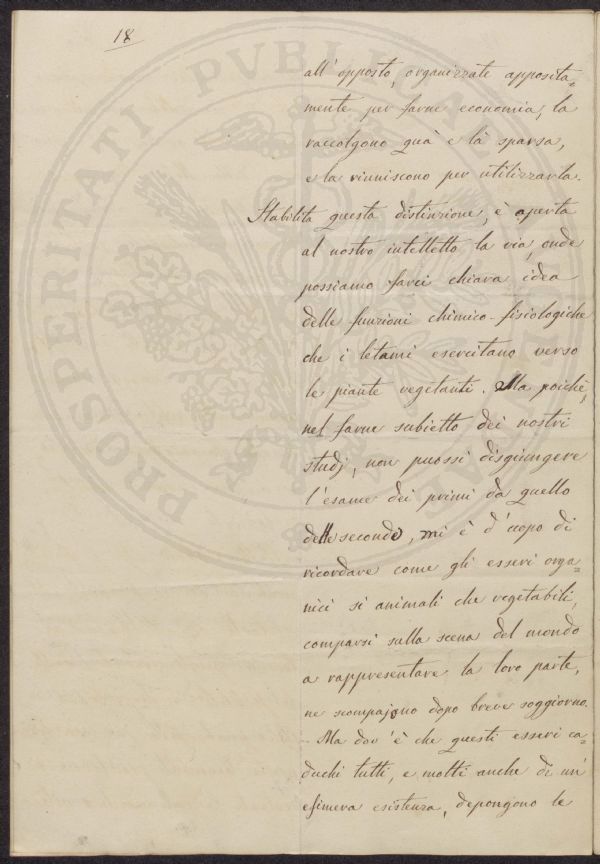 18
all' opposto, organizzate apposita=
mente per farne economia, la
raccolgono quà e là sparsa,
e la riuniscono per utilizzarla.
Stabilita questa distinzione, è aperta
al nostro intelletto la via, onde
possiamo farci chiara idea
delle funzioni chimico-fisiologiche
che i letami esercitano verso
le piante vegetanti. Ma poichè,
nel farne subietto dei nostri
studj, non puossi disgiungere
l'esame dei primi da quello
delle seconde, mi è d'uopo di
ricordare come gli esseri orga=
nici sì animali che vegetabili,
comparsi sulla scena del mondo
a rappresentare la loro parte,
ne scompajono dopo breve soggiorno.
Ma dov'è che questi esseri ca=
duchi tutti, e molti anche di un'
efimera esistenza, depongono le
PROSPERITATI PVBLICAE